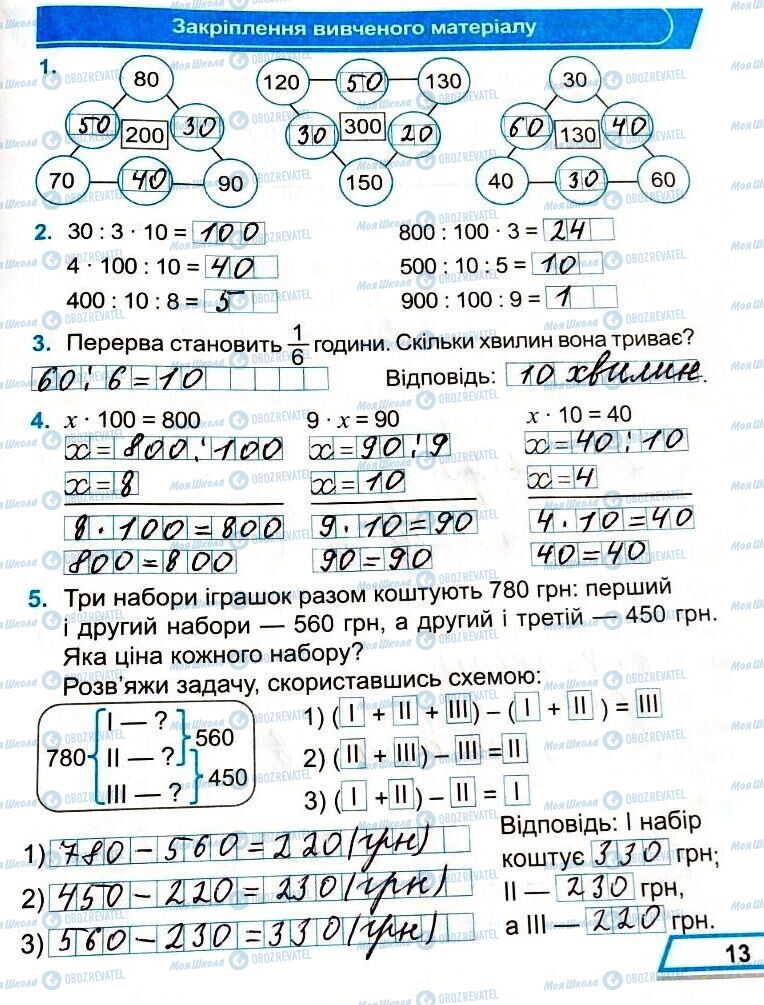 Закріплення вивченого матеріалу
1.
80
50 200 30
70 40 90
120 50 130
30 300 20
150
30
60 130 40
40 30 60
2. 30 : 3 · 10 = 100
800 : 100 · 3 = 24
4 · 100 : 10 = 40
500 : 10 : 5 = 10
400 : 10 : 8 = 5
900 : 100 : 9 = 1
3. Перерва становить 1/6 години. Скільки хвилин вона триває?
60 : 6 = 10
Відповідь: 10 хвилин.
4. x · 100 = 800
9 · x = 90
x · 10 = 40
x = 800 : 100
x = 90 : 9
x = 40 : 10
x = 8
x = 10
x = 4
8 · 100 = 800
9 · 10 = 90
4 · 10 = 40
800 = 800
90 = 90
40 = 40
5. Три набори іграшок разом коштують 780 грн: перший
і другий набори — 560 грн, а другий і третій — 450 грн.
Яка ціна кожного набору?
Розв'яжи задачу, скориставшись схемою:
780
I — ?
II — ?
III — ?
560
450
1) ( I + II + III ) – ( I + II ) = III
2) ( II + III ) – III = II
3) ( I + II ) – II = I
1) 780 – 560 = 220 (грн)
2) 450 – 220 = 230 (грн)
3) 560 – 230 = 330 (грн)
Відповідь: I набір
коштує 330 грн;
II — 230 грн,
а III — 220 грн.
13
МояШкола OBOZREVATEL